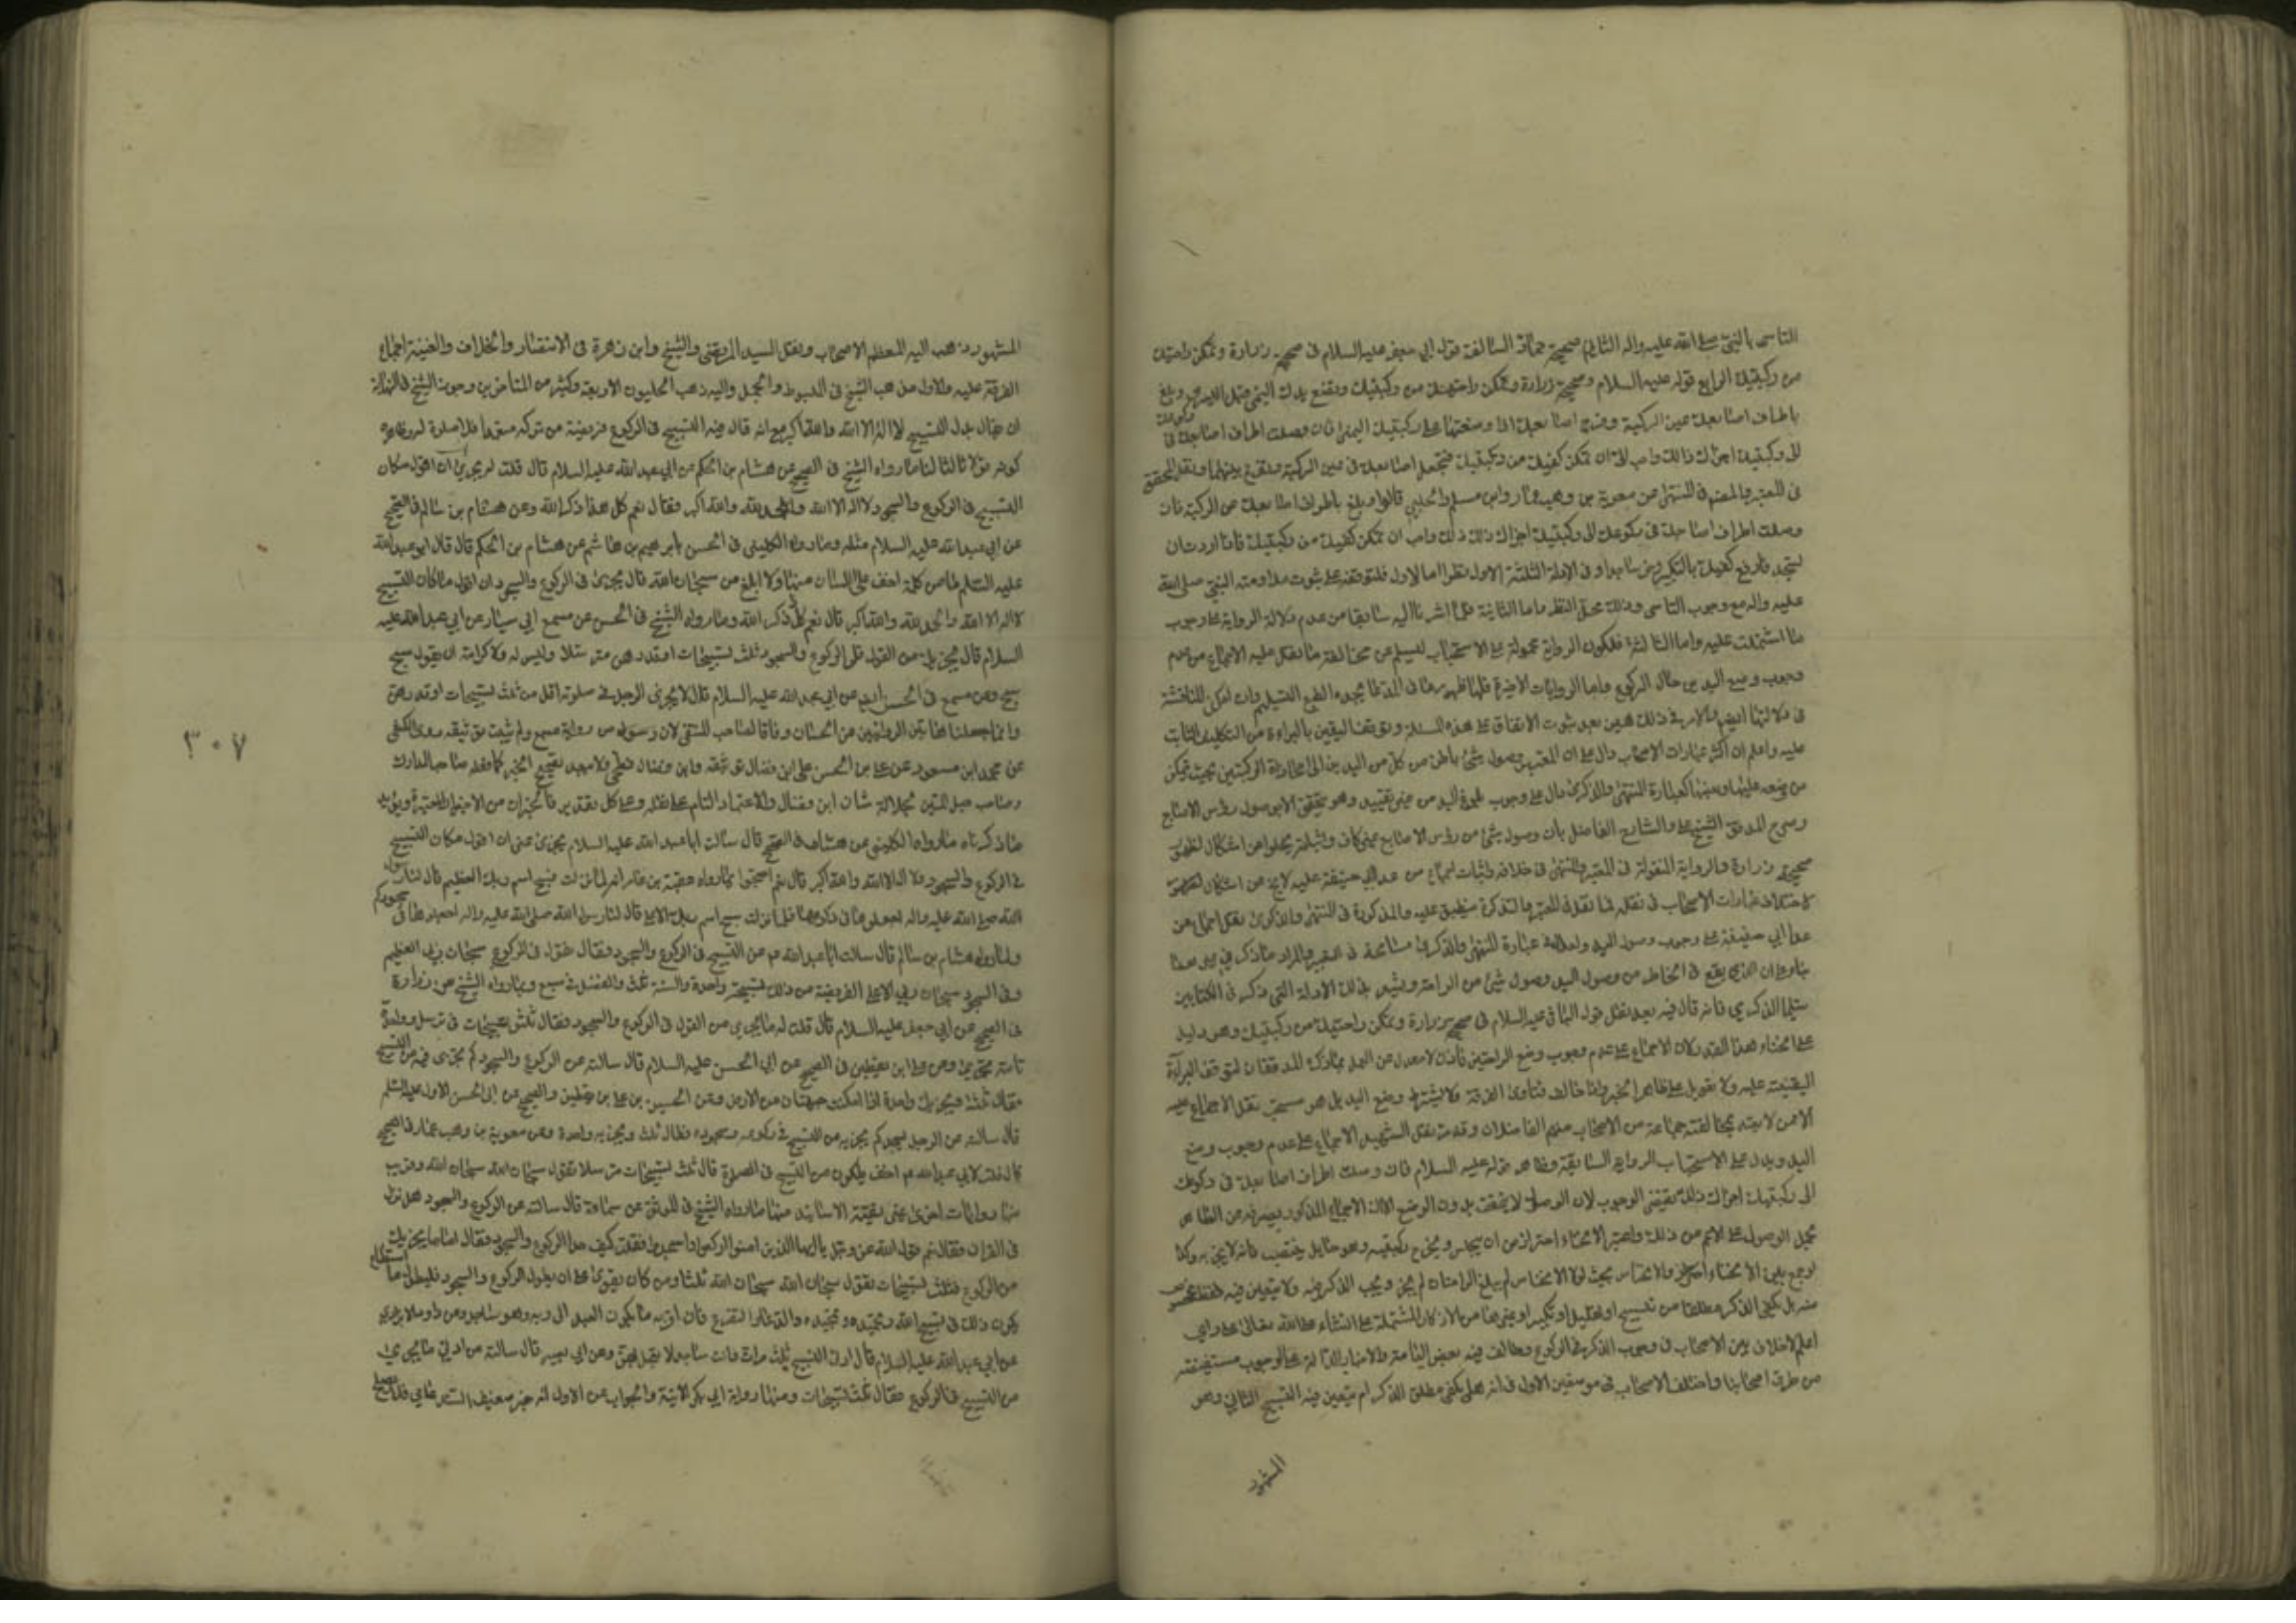 التاسى بالنبى صلى الله عليه واله الثانى صحيحة حماد السالفة قول ابى جعفر عليه السلام فى صحيحة زرارة وتمكن راحتيك
من ركبتيك الرابع قوله عليه السلام وصحيحة زرارة وتمكن راحتيك من ركبتيك وتضع يدك اليمنى قبل اليسرى وبلغ
باطراف اصابعك عين الركبة وفرج اصابعك اذا وضعتها على ركبتيك فان وصلت اطراف اصابعك فى ركوعك
الى ركبتيك اجزاك ذلك واحب الى ان تمكن كفيك من ركبتيك فتجعل اصابعك فى عين الركبة وتفرج بينهما ونقل المحقق
فى المعتبر والمصنف فى المنتهى عن معوية بن وهب وابن مسلم والحلبى قالوا وبلغ باطراف اصابعك عين الركبة فان
وصلت اطراف اصابعك فى ركوعك الى ركبتيك اجزاك ذلك واحب ان تمكن كفيك من ركبتيك فاذا اردت ان
تسجد فارفع كفيك بالتكبير وخر ساجدا وفى الادلة الثلثة الاول نظر اما الاول فلتوقفه على ثبوت مداومته النبى صلى الله
عليه واله مع وجوب التاسى وذلك محل النظر واما الثانية فلما اشرنا اليه سابقا من عدم دلالة الرواية على وجوب
ما اشتملت عليه واما الثالثة فلكون الرواية محمولة على الاستحباب ليسلم عن مخالفة ما نقل عليه الاجماع من عدم
وجوب وضع اليد حال الركوع واما الروايات الاخيرة
فى دلالتها ايضا والامر فى ذلك هين بعد ثبوت الاتفاق على هذه المسئلة وتوقف اليقين بالبراءة من التكليف الثابت
عليه واعلم ان اكثر عبارات الاصحاب دال على ان المعتبر وصول شئ من باطن كل من اليدين الى محاذاة الركبتين بحيث تمكن
من وضعه عليها وبعضها كعبارة المنتهى والذكرى دال على وجوب بلوغ اليد من غير تقييد وهو يتحقق بوصول رؤس الاصابع
وصرح المدقق الشيخ على والشارح الفاضل بان وصول شئ من رؤس الاصابع غير كاف
صحيحة زرارة والرواية المنقولة فى المعتبر والمنتهى فى خلافه واثبات اجماع من عدا ابى حنيفة عليه لا يخ عن اشكال
لاختلاف عبارات الاصحاب فى نقله فما نقل فى المعتبر والتذكرة ينطبق عليه والمذكورة فى المنتهى والذكرى نقل اجماع من
عدا ابى حنيفة على وجوب وصول اليد ولعل فى عبارة المنتهى والذكرى مسامحة فى التعبير والمراد ما ذكر فى غير هذا
بناء على ان الذى يقع فى الخاطر من وصول اليد وصول شئ من الراحة ويشهد بذلك الادلة التى ذكر فى الكتابين
سيما الذكرى فانه قال فيه بعد نقل قول الباقر عليه السلام فى صحيح زرارة وتمكن راحتيك من ركبتيك وهو دليل
على انحناء هذا القدر لان الاجماع على عدم وجوب وضع الراحتين فاذن لا معدل عن العمل بما ذكره المدققان لتوقف البراءة
اليقينية عليه ولا تعويل على ظاهر الخبر اذا خالف فتاوى الفرقة ولا يشترط وضع اليد بل هو مستحب نقل الاجماع عليه
الا من لا يعتد بمخالفته جماعة من الاصحاب منهم الفاضلان وقد مر نقل الشهيد الاجماع على عدم وجوب وضع
اليد ويدل على الاستحباب الرواية السابقة وظاهر قوله عليه السلام فان وصلت اطراف اصابعك فى ركوعك
الى ركبتيك اجزاك ذلك يقتضى الوجوب لان الوصول لا يتحقق بدون الوضع الا ان الاجماع المذكور يصرفه عن الظاهر
بحمل الوصول على الاعم من ذلك واعتبر الانحناء احتراز من ان يجلس ويخرج ركبتيه وهو مايل منتصب فانه لا يجزيه وكذا
لو جمع بين الانحناء والانخناس بحيث لولا الانخناس لم يبلغ الراحتان لم يجز ويجب الذكر فيه ولا يتعين فيه
منه بل يكفى الذكر مطلقا من تسبيح او تهليل او تكبير او غيرها من الاذكار المشتملة على الثناء على الله تعالى على راى
اعلم لا خلاف بين الاصحاب فى وجوب الذكر فى الركوع وخالف فيه بعض العامة والاخبار الدالة على الوجوب مستفيضة
من طريق اصحابنا واختلف الاصحاب فى موضعين الاول فى انه هل يكفى مطلق الذكر ام يتعين فيه التسبيح الثانى وهو
المشهور
المشهور ذهب اليه المعظم الاصحاب ونقل السيد المرتضى والشيخ وابن زهرة فى الانتصار والخلاف والغنية اجماع
الفرقة عليه والاول مذهب الشيخ فى المبسوط والجمل واليه ذهب الحليون الاربعة وكثير من المتاخرين وجوز الشيخ فى النهاية
ان يقال بدل التسبيح لا اله الا الله والله اكبر مع انه قال فيه التسبيح فى الركوع فريضة من تركه متعمدا فلا صلوة له وظاهره
كونه قولا ثالثا لنا ما رواه الشيخ فى الصحيح عن هشام بن الحكم عن ابى عبد الله عليه السلام قال قلت له يجزى ان اقول مكان
التسبيح فى الركوع والسجود لا اله الا الله والحمد لله والله اكبر فقال نعم كل هذا ذكر الله وعن هشام بن سالم فى الصحيح
عن ابى عبد الله عليه السلام مثله وما رواه الكلينى فى الحسن بابرهيم بن هاشم عن هشام بن الحكم قال قال ابو عبد الله
عليه السلام ما من كلمة اخف على اللسان منها ولا ابلغ من سبحان الله قال يجزى فى الركوع والسجود ان اقول مكان التسبيح
لا اله الا الله والحمد لله والله اكبر قال نعم كل ذكر الله وما رواه الشيخ فى الحسن عن مسمع ابى سيار عن ابى عبد الله عليه
السلام قال يجزيك من القول فى الركوع والسجود ثلث تسبيحات او قدرهن مترسلا وليس له ولا كرامة ان يقول سبح
سبح وعن مسمع فى الحسن ايض عن ابى عبد الله عليه السلام قال لا يجزى الرجل فى صلوته اقل من ثلث تسبيحات او قدرهن
وانما جعلنا هاتين الروايتين من الحسان وفاقا لصاحب المنتقى لان
عن محمد ابن مسعود عن على بن الحسن على ابن فضال توثيقه وابن فضال فطحى فلا يبعد تصحيح الخبر كما فعله صاحب المدارك
وصاحب حبل المتين لجلالة شان ابن فضال والاعتماد التام على نقله وعلى كل تقدير فالخبران من الاخبار المعتبرة ويؤيد
ما ذكرناه ما رواه الكلينى عن هشام فى الصحيح قال سالت ابا عبد الله عليه السلام يجزى عنى ان اقول مكان التسبيح
فى الركوع والسجود لا اله الا الله والله اكبر قال نعم احتجوا بما رواه عقبة بن عامر انه لما نزلت فسبح باسم ربك العظيم قال لنا رسول
الله صلى الله عليه واله اجعلوها فى ركوعكم فلما نزلت سبح اسم ربك الاعلى قال لنا رسول الله صلى الله عليه واله اجعلوها فى سجودكم
ولما رواه هشام بن سالم قال سالت ابا عبد الله ع عن التسبيح فى الركوع والسجود فقال تقول فى الركوع سبحان ربى العظيم
وفى السجود سبحان ربى الاعلى الفريضة من ذلك تسبيحة واحدة والسنة ثلث والفضل فى سبع وبما رواه الشيخ عن زرارة
فى الصحيح عن ابى جعفر عليه السلام قال قلت له ما يجزى من القول فى الركوع والسجود فقال ثلث تسبيحات فى ترسل وواحدة
تامة تجزى وعن على ابن يقطين فى الصحيح عن ابى الحسن عليه السلام قال سالته عن الركوع والسجود كم يجزى فيه من التسبيح
فقال ثلثة ويجزيك واحدة اذا امكنت جبهتك من الارض وعن الحسين بن على بن يقطين والصحيح عن ابى الحسن الاول عليه السلام
قال سالته عن الرجل يسجد كم يجزيه من التسبيح فى ركوعه وسجوده فقال ثلث ويجزيه واحدة وعن معوية بن عمار فى الصحيح
قال قلت لابى عبد الله ع اخف ما يكون من التسبيح فى الصلوة قال ثلث تسبيحات مترسلا تقول سبحان الله سبحان الله وقريب
منها روايات اخرى غير نقية الاسانيد منها ما رواه الشيخ فى الموثق عن سماعة قال سالته عن الركوع والسجود هل نزل
فى القران فقال نعم قول الله عز وجل يا ايها الذين امنوا اركعوا واسجدوا فقلت كيف حد الركوع والسجود فقال اما ما يجزيك
من الركوع فثلث تسبيحات تقول سبحان الله سبحان الله ثلثا ومن كان يقوى على ان يطول الركوع والسجود فليطول ما استطاع
يكون ذلك فى تسبيح الله وتحميده وتمجيده والدعاء والتضرع فان اقرب ما يكون العبد الى ربه وهو ساجد وعن داود الابزارى
عن ابى عبد الله عليه السلام قال ادنى التسبيح ثلث مرات وانت ساجد لا تعجل بهن وعن ابى بصير قال سالته من ادنى ما يجزى
من التسبيح فى الركوع فقال ثلث تسبيحات ومنها رواية ابى بكر الاتية والجواب عن الاول انه خبر ضعيف السند عامى فلا يصلح
٣٠٧